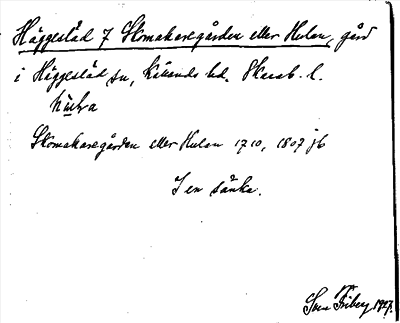 Häggesled 7 Skomakaregården eller Hulan, gård
i Häggesled sn, Kållands hd. Skarab. l.
Skomakaregården eller Hulan 1710, 1807 jb
I en sänka.
Sven Friberg 1927.